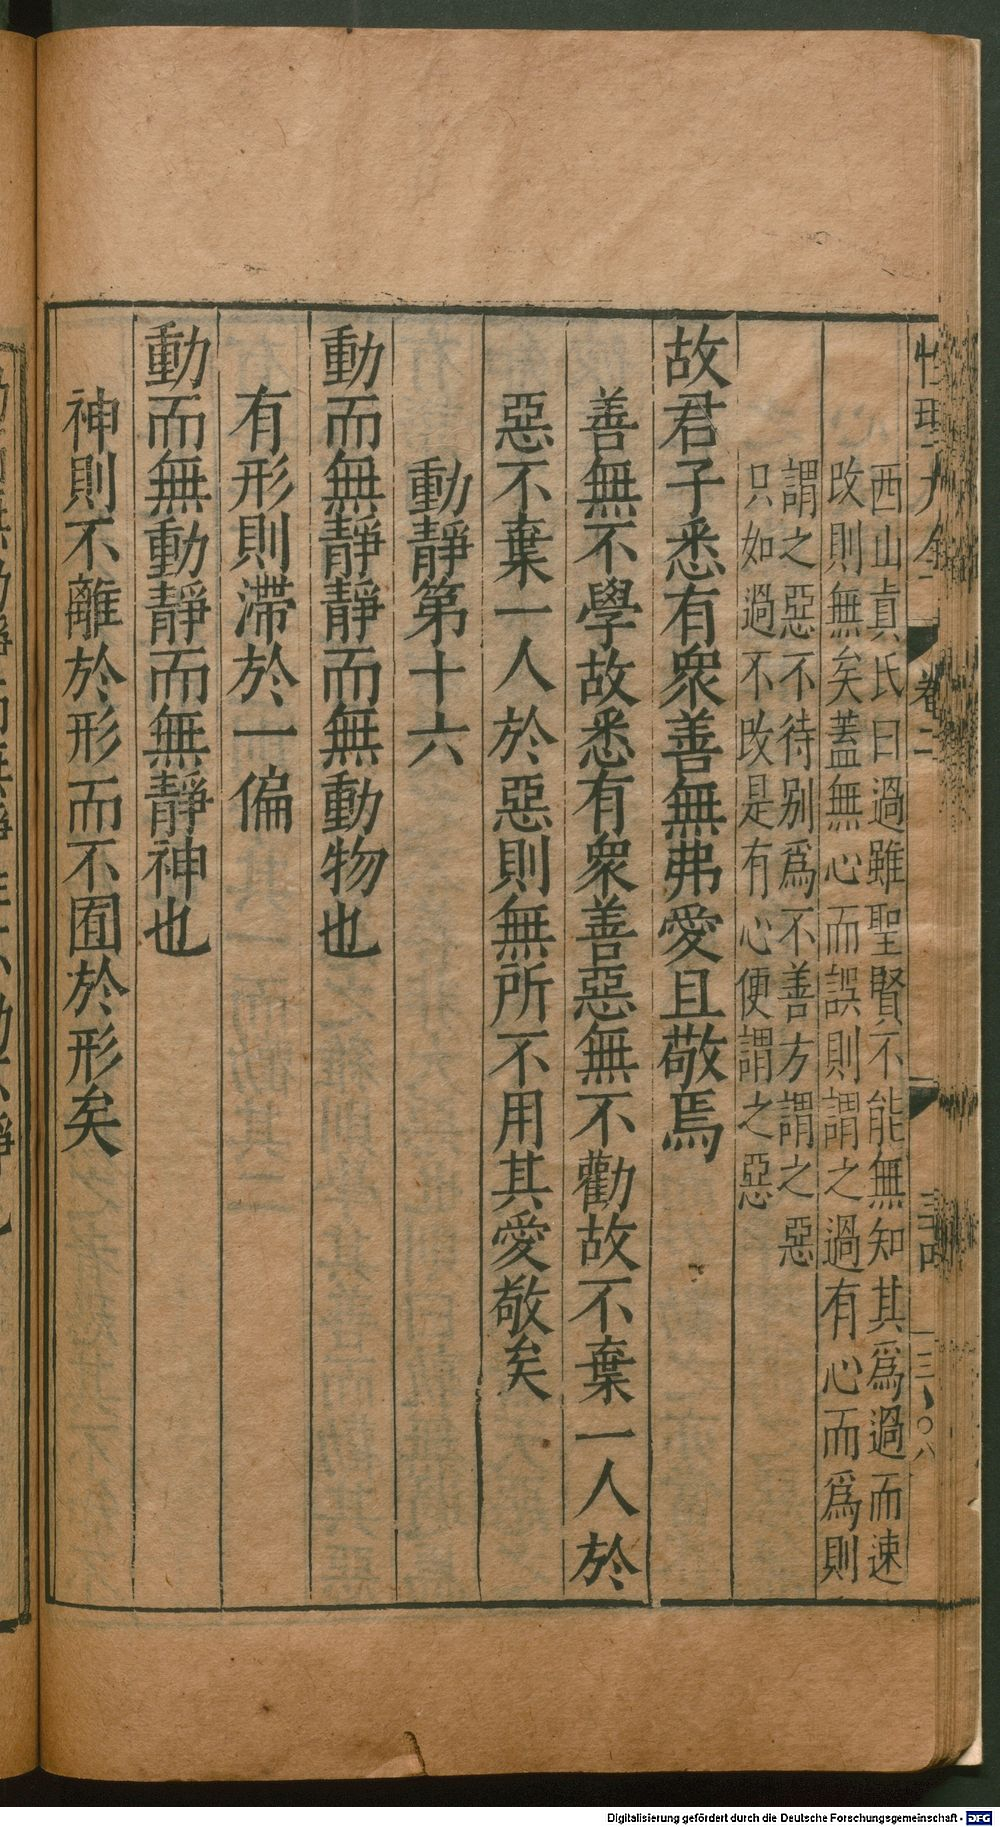 西山眞氏曰過雖聖賢不能無知其爲過而速
改則無矣蓋無心而誤則謂之過有心而爲則
謂之惡不待別爲不善方謂之惡
只如過不改是有心便謂之惡
故君子悉有衆善無弗愛且敬焉
善無不學故悉有衆善惡無不勸故不棄一人於
惡不棄一人於惡則無所不用其愛敬矣
動靜第十六
動而無靜靜而無動物也
有形則滯於一偏
動而無動靜而無靜神也
神則不離於形而不囿於形矣
性理大全 卷二 三十四
Digitalisierung gefördert durch die Deutsche Forschungsgemeinschaft - DFG